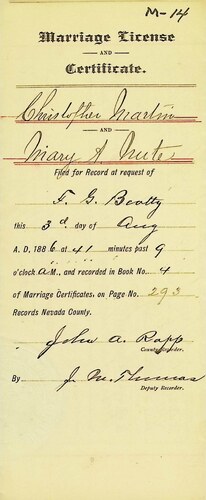 M-14
Marriage License
AND
Certificate.
Christopher Martin
AND
Mary A.
Filed for Record at request of
F. G. Beatty
this 3d. day of Aug
A. D. 1886 at 41 minutes past 9
o'clock A M., and recorded in Book No. 4
of Marriage Certificates, on Page No. 293
Records Nevada County.
John A. Rapp
County Recorder.
By J. M. Thomas
Deputy Recorder.